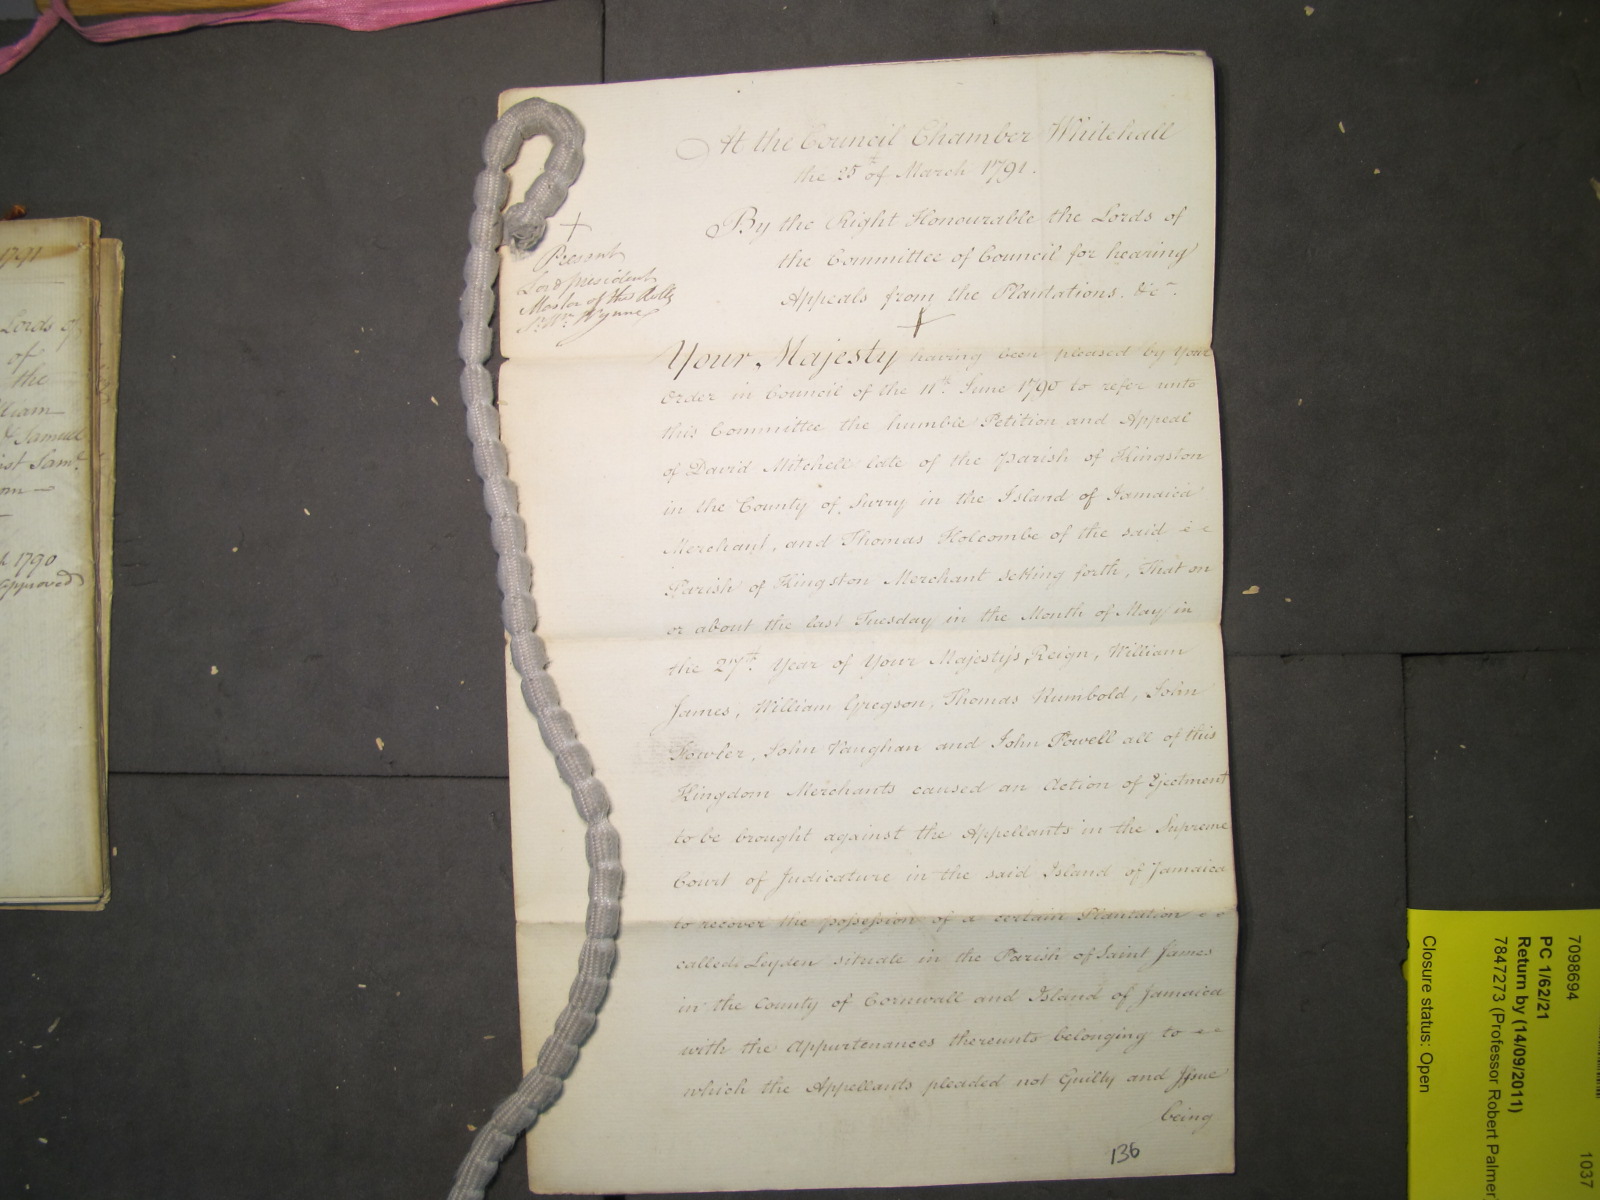 At the Council Chamber Whitehall
the 25th of March 1791.
By the Right Honourable the Lords of
the Committee of Council for hearing
Appeals from the Plantations. &c.
Present
Lord President
Master of the Rolls
Sr. Wm. Wynne
Your Majesty having been pleased by Your
Order in Council of the 11th. June 1790 to refer unto
this Committee the humble Petition and Appeal
of David Mitchell late of the parish of Kingston
in the County of Surry in the Island of Jamaica
Merchant, and Thomas Holcombe of the said
Parish of Kingston Merchant setting forth, That on
or about the last Tuesday in the Month of May in
the 27th. Year of Your Majesty's Reign, William
James, William Gregson, Thomas Rumbold, John
Fowler, John Vaughan and John Powell all of this
Kingdom Merchants caused an Action of Ejectment
to be brought against the Appellants in the Supreme
Court of Judicature in the said Island of Jamaica
to recover the possession of a certain Plantation
called Leyden situate in the Parish of Saint James
in the County of Cornwall and Island of Jamaica
with the Appurtenances thereunto belonging to
which the Appellants pleaded not Guilty and Issue
being
136
1791
Lords of
of
the
liam
& Samuel
1790
approved
7098694
PC 1/62/21
Return by (14/09/2011)
7847273 (Professor Robert Palmer
Closure status: Open
1037